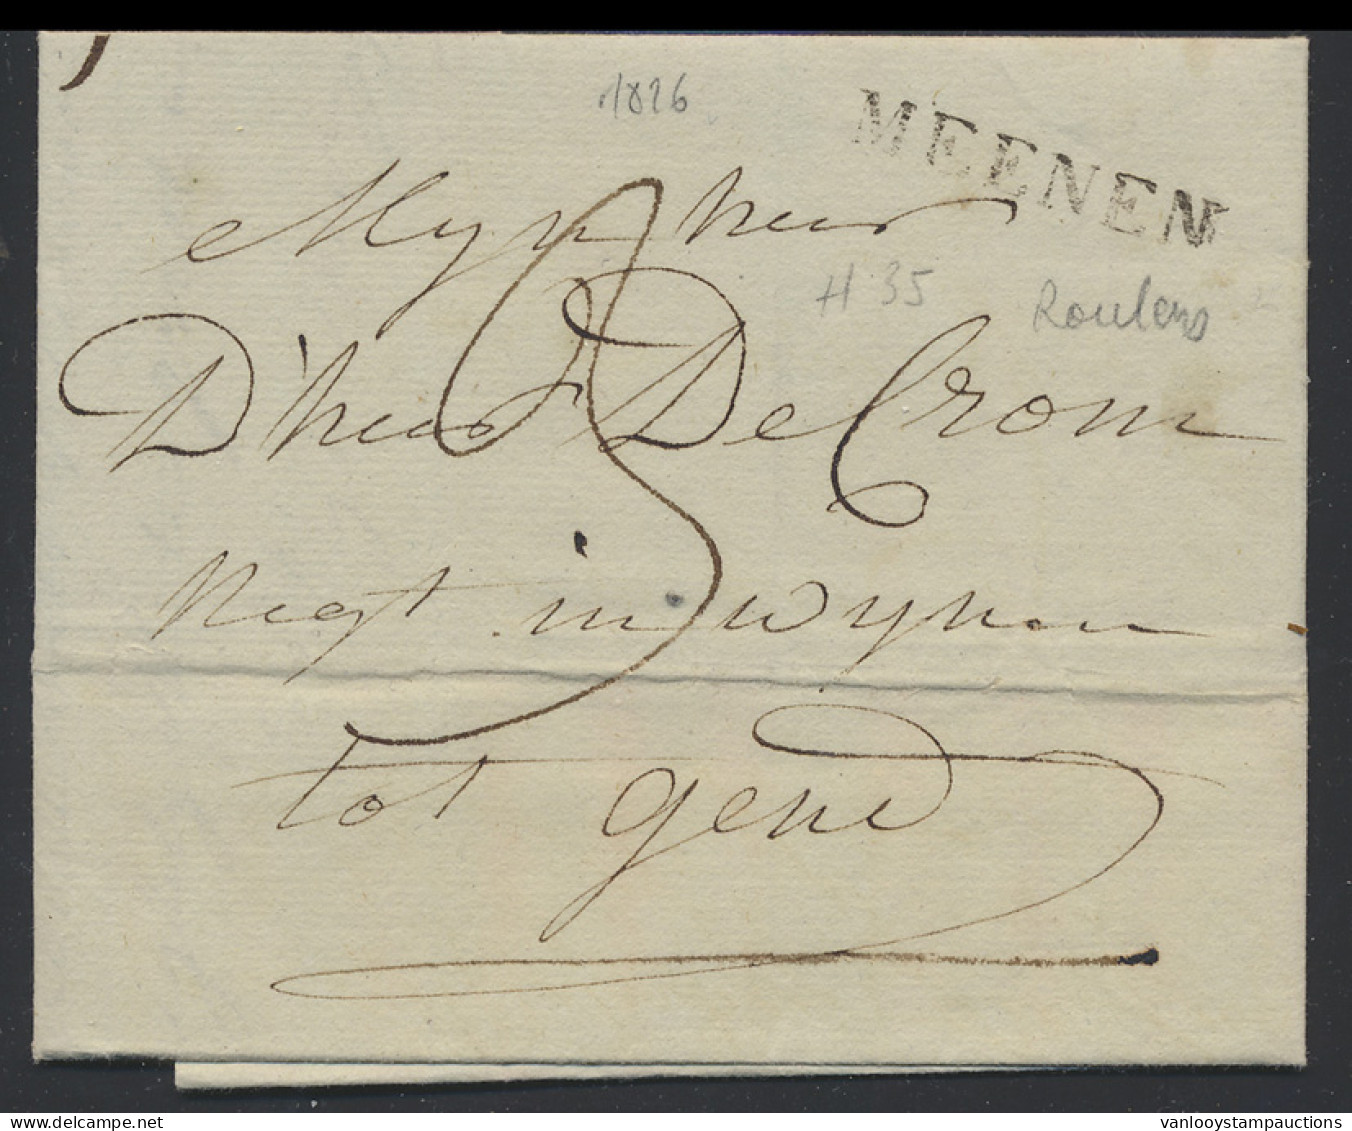 1826
MEENEN
Mynheer
H 35
Roulers
D'heer De Crom
Negt in wynen
tot gend
www.delcampe.net
vanlooystampauctions